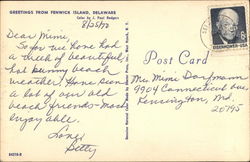 GREETINGS FROM FENWICK ISLAND, DELAWARE
Color by J. Paul Rodgers
8/25/72
Dear Mimi,
So far we have had
a week of beautiful,
hot sunny beach
weather. Have seen
a lot of our old
beach friends - most
enjoyable.
Love,
Betty
Post Card
EISENHOWER · USA
Ms. Mimi Dorfmann
9904 Connecticut Ave.
Kensington, Md.
20795